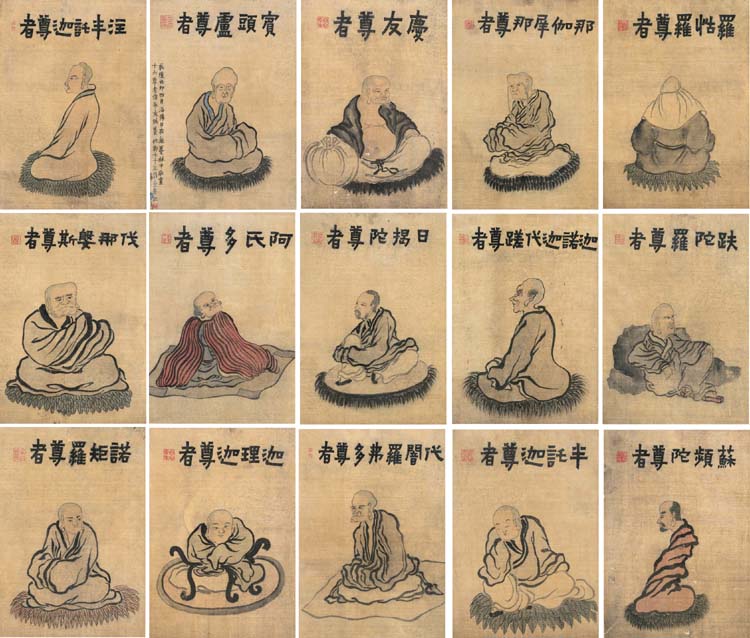 羅怙羅尊者
那伽犀那尊者
慶友尊者
賓頭盧尊者
注半託迦尊者
跋陀羅尊者
迦諾迦代蹉尊者
日揭陀尊者
阿氏多尊者
伐那婆斯尊者
蘇頻陀尊者
半託迦尊者
代闍羅弗多尊者
迦理迦尊者
諾矩羅尊者